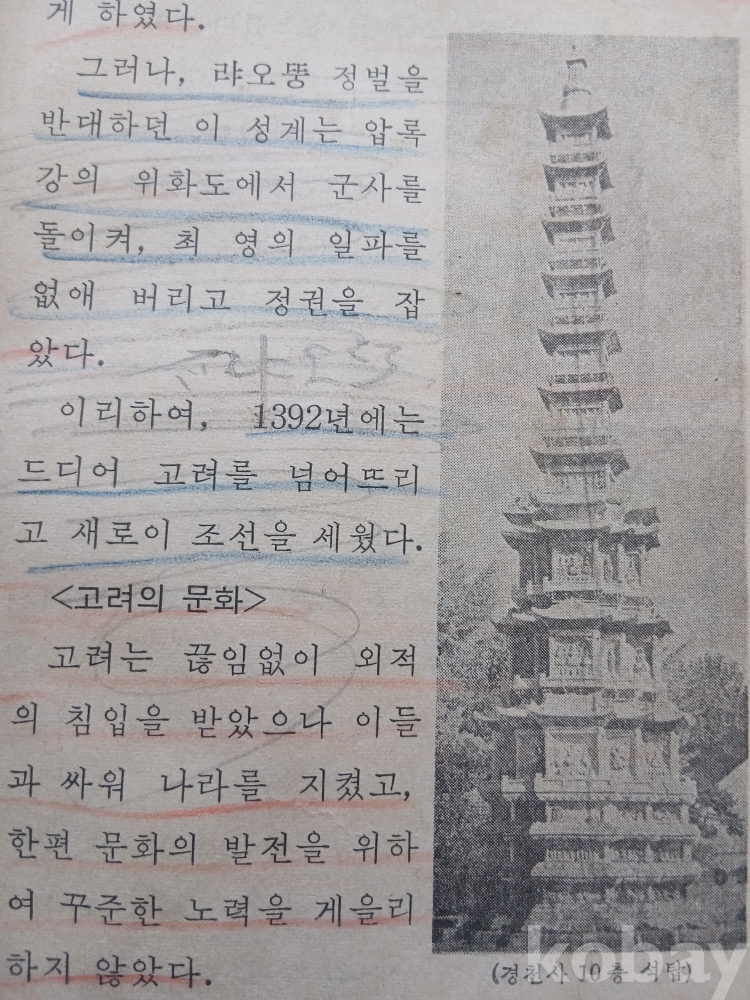 게 하였다.
그러나, 랴오뚱 정벌을
반대하던 이 성계는 압록
강의 위화도에서 군사를
돌이켜, 최 영의 일파를
없애 버리고 정권을 잡
았다.
이리하여, 1392년에는
드디어 고려를 넘어뜨리
고 새로이 조선을 세웠다.
<고려의 문화>
고려는 끊임없이 외적
의 침입을 받았으나 이들
과 싸워 나라를 지켰고,
한편 문화의 발전을 위하
여 꾸준한 노력을 게을리
하지 않았다.
(경천사 10층 석탑)
kobay